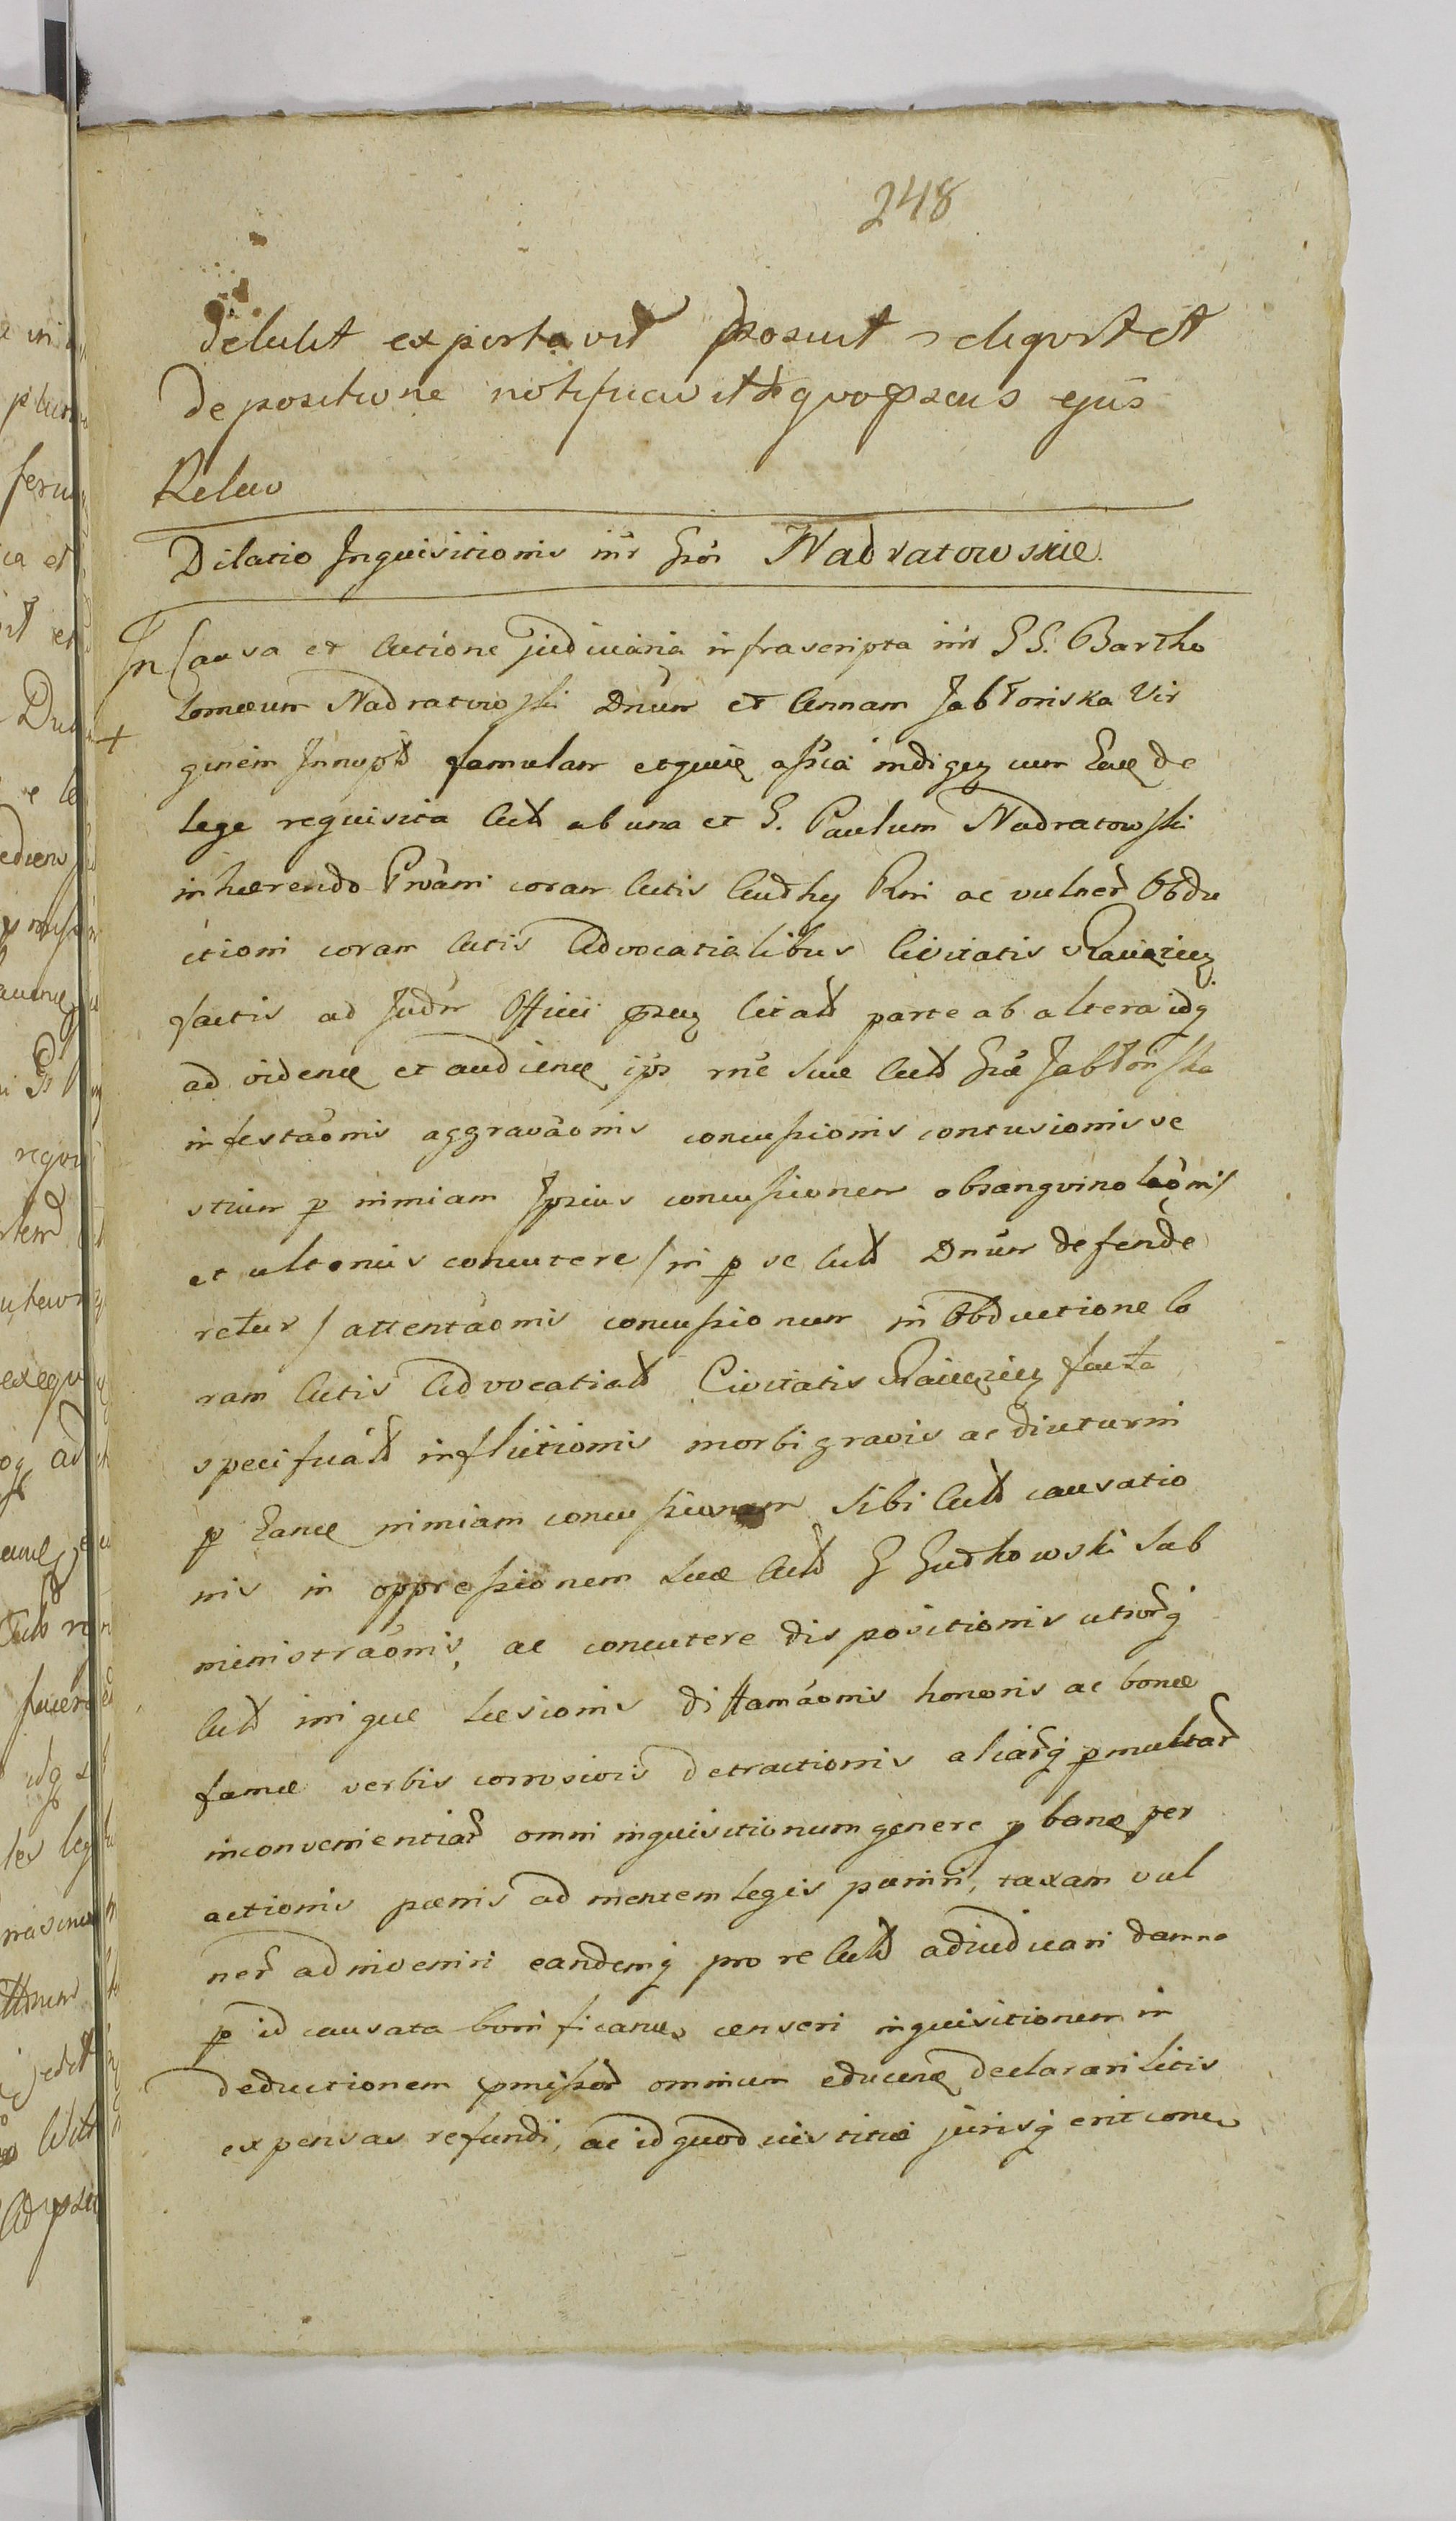 248
detulit exportavit posuit reliquit et
depositione notificavit de quo præus ejus
Relao
Dilatio Inquisitionis intr Gsos Nadratowskie
In Causa et Actione judiciaria infrascripta intr GG. Bartho
lomæum Nadratowski Dnum et Annam Jabłonska Vir
ginem Innupt famulam
lege requisita Act ab una et G. Paulum Nadratowski
inhærendo coram Actis ac vulner Obdu
ctioni coram Actis Advocatialibus Civitatis Ravien
factis ad Judm Officii præn Citat parte ab altera idq
ad videndæ et audiendæ ips suæ Act Gsæ Jabłonska
infestaonis aggravaonis concussionis contusionis ve
stium p nimiam Ipsius concussionem
et ultonius concutere / ni p se Act Dnum defende
retur / attentaonis concussionum in Obductione Co
ram Actis Advocatialt Civitatis facta
specificat inflictionis morbi gravis ac diuturni
p Eandæ nimiam concussionem sibi Act causatio
nis in oppressionem suæ Act G Gudkowski sub
ministraonis, ac concutere dispositionis utrorq
Act iniquæ Læsionis diffamaonis honoris ac bonæ
famæ verbis corrosivis detractionis aliarq pmultar
inconvenientiar omni inquisitionum genere p banæ per
actionis pænis ad mentem legis puniri, taxam vul
ner adinveniri eandemq pro re Act adiudicari damna
p id causata bonificandæ censeri inquisitionem in
deductionem pmissor omnium educendæ declarari Litis
expensas refundi, ac id quod iustitiæ jurisq erit